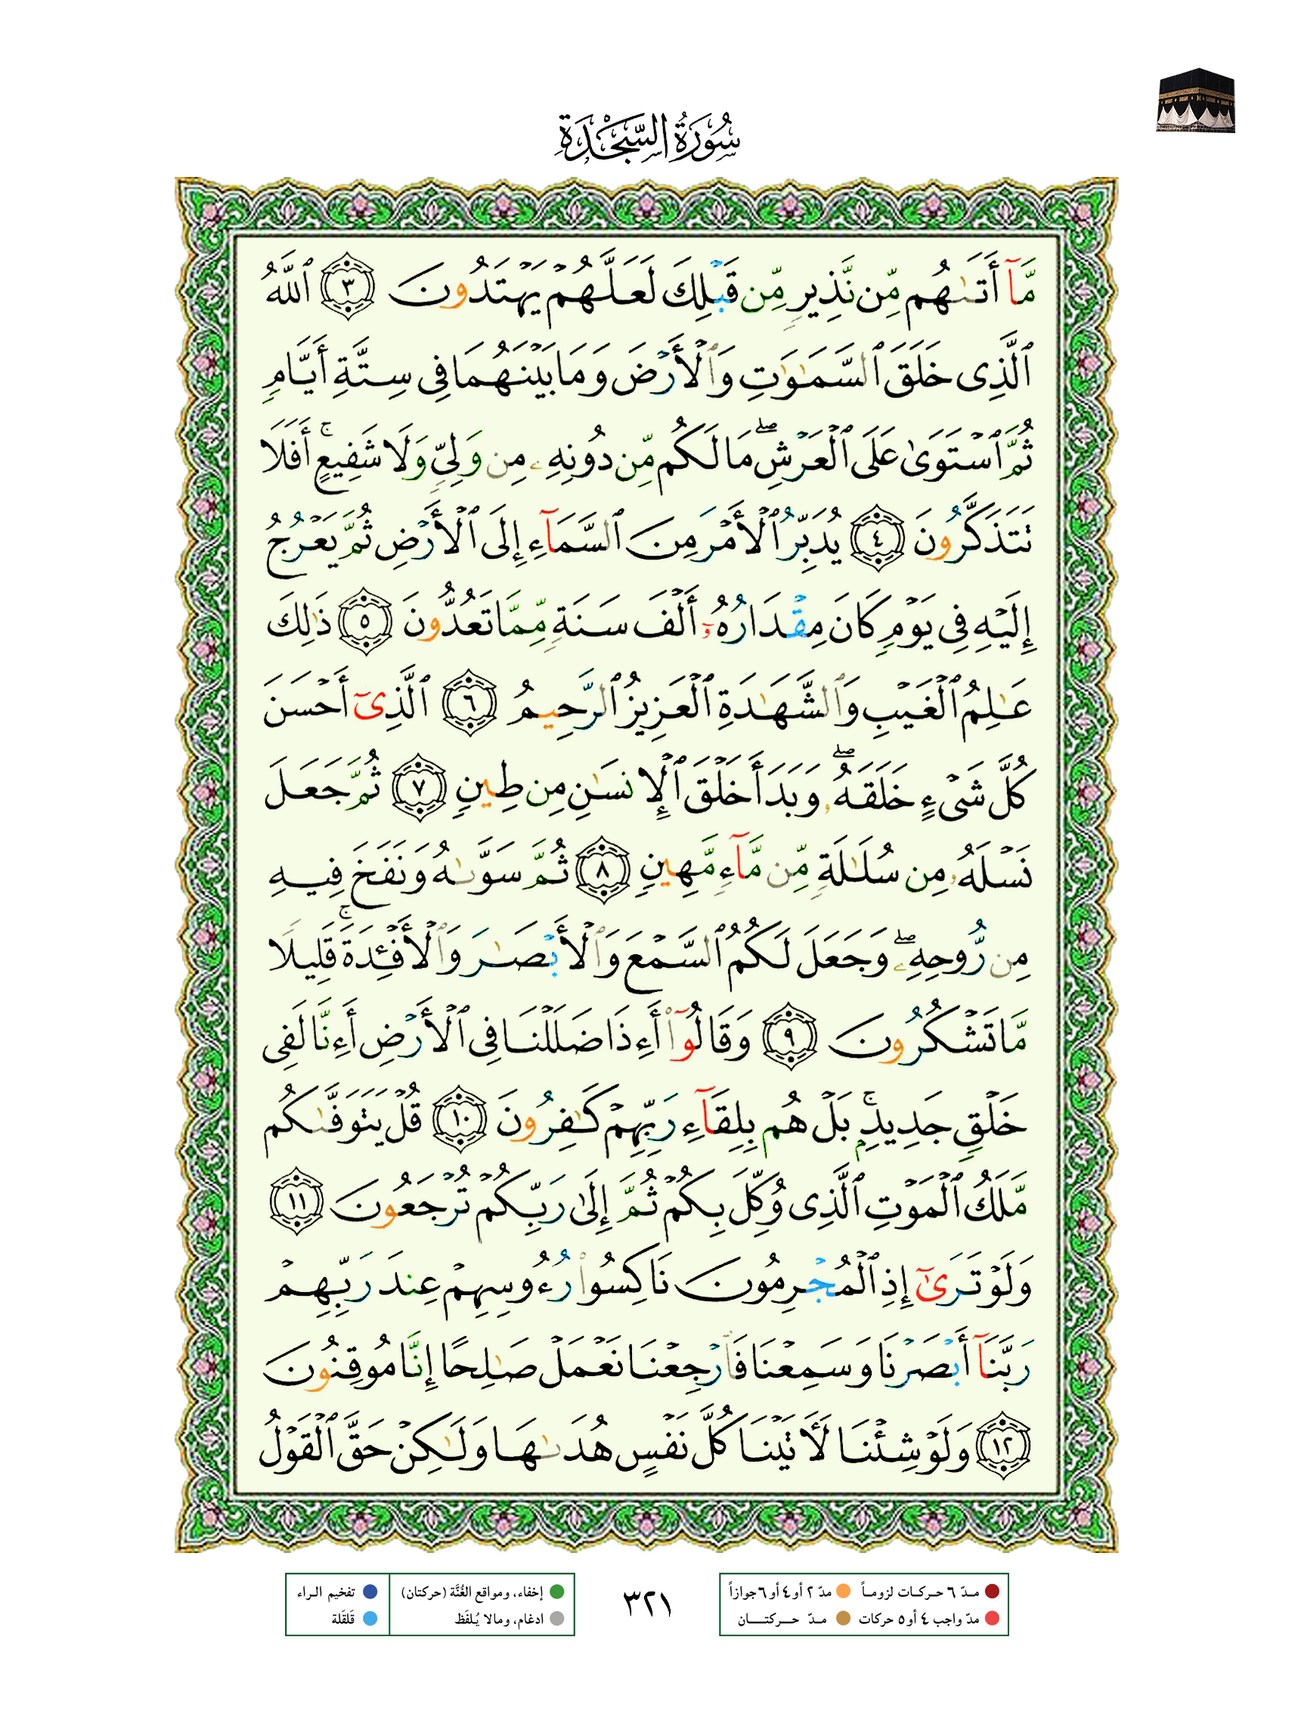 سُورَةُ السَّجْدَةِ
مَّآ أَتَىٰهُم مِّن نَّذِيرٍ مِّن قَبْلِكَ لَعَلَّهُمْ يَهْتَدُونَ ﴿٣﴾ ٱللَّهُ
ٱلَّذِى خَلَقَ ٱلسَّمَٰوَٰتِ وَٱلْأَرْضَ وَمَا بَيْنَهُمَا فِى سِتَّةِ أَيَّامٍ
ثُمَّ ٱسْتَوَىٰ عَلَى ٱلْعَرْشِ ۖ مَا لَكُم مِّن دُونِهِۦ مِن وَلِىٍّ وَلَا شَفِيعٍ ۚ أَفَلَا
تَتَذَكَّرُونَ ﴿٤﴾ يُدَبِّرُ ٱلْأَمْرَ مِنَ ٱلسَّمَآءِ إِلَى ٱلْأَرْضِ ثُمَّ يَعْرُجُ
إِلَيْهِ فِى يَوْمٍ كَانَ مِقْدَارُهُۥٓ أَلْفَ سَنَةٍ مِّمَّا تَعُدُّونَ ﴿٥﴾ ذَٰلِكَ
عَٰلِمُ ٱلْغَيْبِ وَٱلشَّهَٰدَةِ ٱلْعَزِيزُ ٱلرَّحِيمُ ﴿٦﴾ ٱلَّذِىٓ أَحْسَنَ
كُلَّ شَىْءٍ خَلَقَهُۥ ۖ وَبَدَأَ خَلْقَ ٱلْإِنسَٰنِ مِن طِينٍ ﴿٧﴾ ثُمَّ جَعَلَ
نَسْلَهُۥ مِن سُلَٰلَةٍ مِّن مَّآءٍ مَّهِينٍ ﴿٨﴾ ثُمَّ سَوَّىٰهُ وَنَفَخَ فِيهِ
مِن رُّوحِهِۦ ۖ وَجَعَلَ لَكُمُ ٱلسَّمْعَ وَٱلْأَبْصَٰرَ وَٱلْأَفْـِٔدَةَ ۚ قَلِيلًا
مَّا تَشْكُرُونَ ﴿٩﴾ وَقَالُوٓا۟ أَءِذَا ضَلَلْنَا فِى ٱلْأَرْضِ أَءِنَّا لَفِى
خَلْقٍ جَدِيدٍۭ ۚ بَلْ هُم بِلِقَآءِ رَبِّهِمْ كَٰفِرُونَ ﴿١٠﴾ قُلْ يَتَوَفَّىٰكُم
مَّلَكُ ٱلْمَوْتِ ٱلَّذِى وُكِّلَ بِكُمْ ثُمَّ إِلَىٰ رَبِّكُمْ تُرْجَعُونَ ﴿١١﴾
وَلَوْ تَرَىٰٓ إِذِ ٱلْمُجْرِمُونَ نَاكِسُوا۟ رُءُوسِهِمْ عِندَ رَبِّهِمْ
رَبَّنَآ أَبْصَرْنَا وَسَمِعْنَا فَٱرْجِعْنَا نَعْمَلْ صَٰلِحًا إِنَّا مُوقِنُونَ
﴿١٢﴾ وَلَوْ شِئْنَا لَـَٔاتَيْنَا كُلَّ نَفْسٍ هُدَىٰهَا وَلَٰكِنْ حَقَّ ٱلْقَوْلُ
مدّ ٦ حركات لزوماً مدّ ٢ أو ٤ أو ٦ جوازاً
مدّ واجب ٤ أو ٥ حركات مدّ حركتان
٣٢١
إخفاء، ومواقع الغُنَّة (حركتان) تفخيم الراء
ادغام، ومالا يُلفَظ قَلقَلة